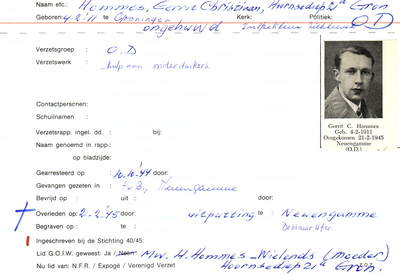 Naam etc.: Hommes, Gerrit Christiaan, Hoornsediep 21a Gron
Geboren: 4-2-11 te Groningen Kerk: Politiek:
ongehuwd O.D
Verzetsgroep : O.D
Verzetswerk : hulp aan onderduikers.
Contactpersonen:
Schuilnaam :
Verzetsrapp. ingel. dd. : bij:
Naam genoemd in rapp.:
op bladzijde:
Gerrit C. Hommes
Geb. 4-2-1911
Omgekomen 21-2-1945
Neuengamme
(O.D.)
Gearresteerd op : 10.10.'44 door:
Gevangen gezeten in : Neuengamme
Bevrijd op : uit : door:
Overleden op : 2-2-'45 door: uitputting te : Neuengamme
Begraven op : te :
Ingeschreven bij de Stichting 40/45:
Lid G.O.I.W. geweest: Ja / Neen Mw. H. Hommes-Wielends (moeder)
Nu lid van: N.F.R. / Expogé / Verenigd Verzet Hoornsediep 21a Gron.